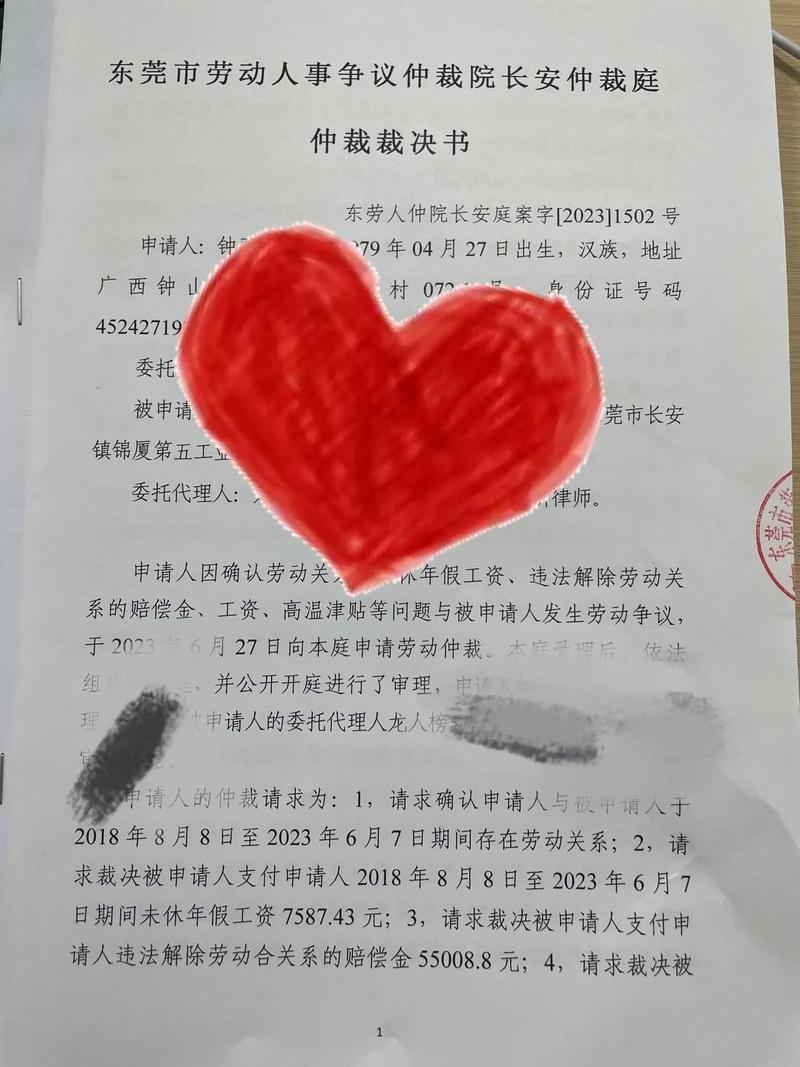 东莞市劳动人事争议仲裁院长安仲裁庭
仲裁裁决书
东劳人仲院长安庭案字[2023]1502 号
申请人：钟 79 年 04 月 27 日出生，汉族，地址
广西钟山 村 072 号 身份证号码
45242719
委托
被申请 莞市长安
镇锦厦第五工业
委托代理人： 律师。
申请人因确认劳动关 休年假工资、违法解除劳动关
系的赔偿金、工资、高温津贴等问题与被申请人发生劳动争议，
于 2023 年 6 月 27 日向本庭申请劳动仲裁。本庭受理后，依法
组 ，并公开开庭进行了审理，申请人
理 被申请人的委托代理人龙人榜
审
申请人的仲裁请求为：1，请求确认申请人与被申请人于
2018 年 8 月 8 日至 2023 年 6 月 7 日期间存在劳动关系；2，请
求裁决被申请人支付申请人 2018 年 8 月 8 日至 2023 年 6 月 7
日期间未休年假工资 7587.43 元；3，请求裁决被申请人支付申
请人违法解除劳动合关系的赔偿金 55008.8 元；4，请求裁决被
1
东莞市劳